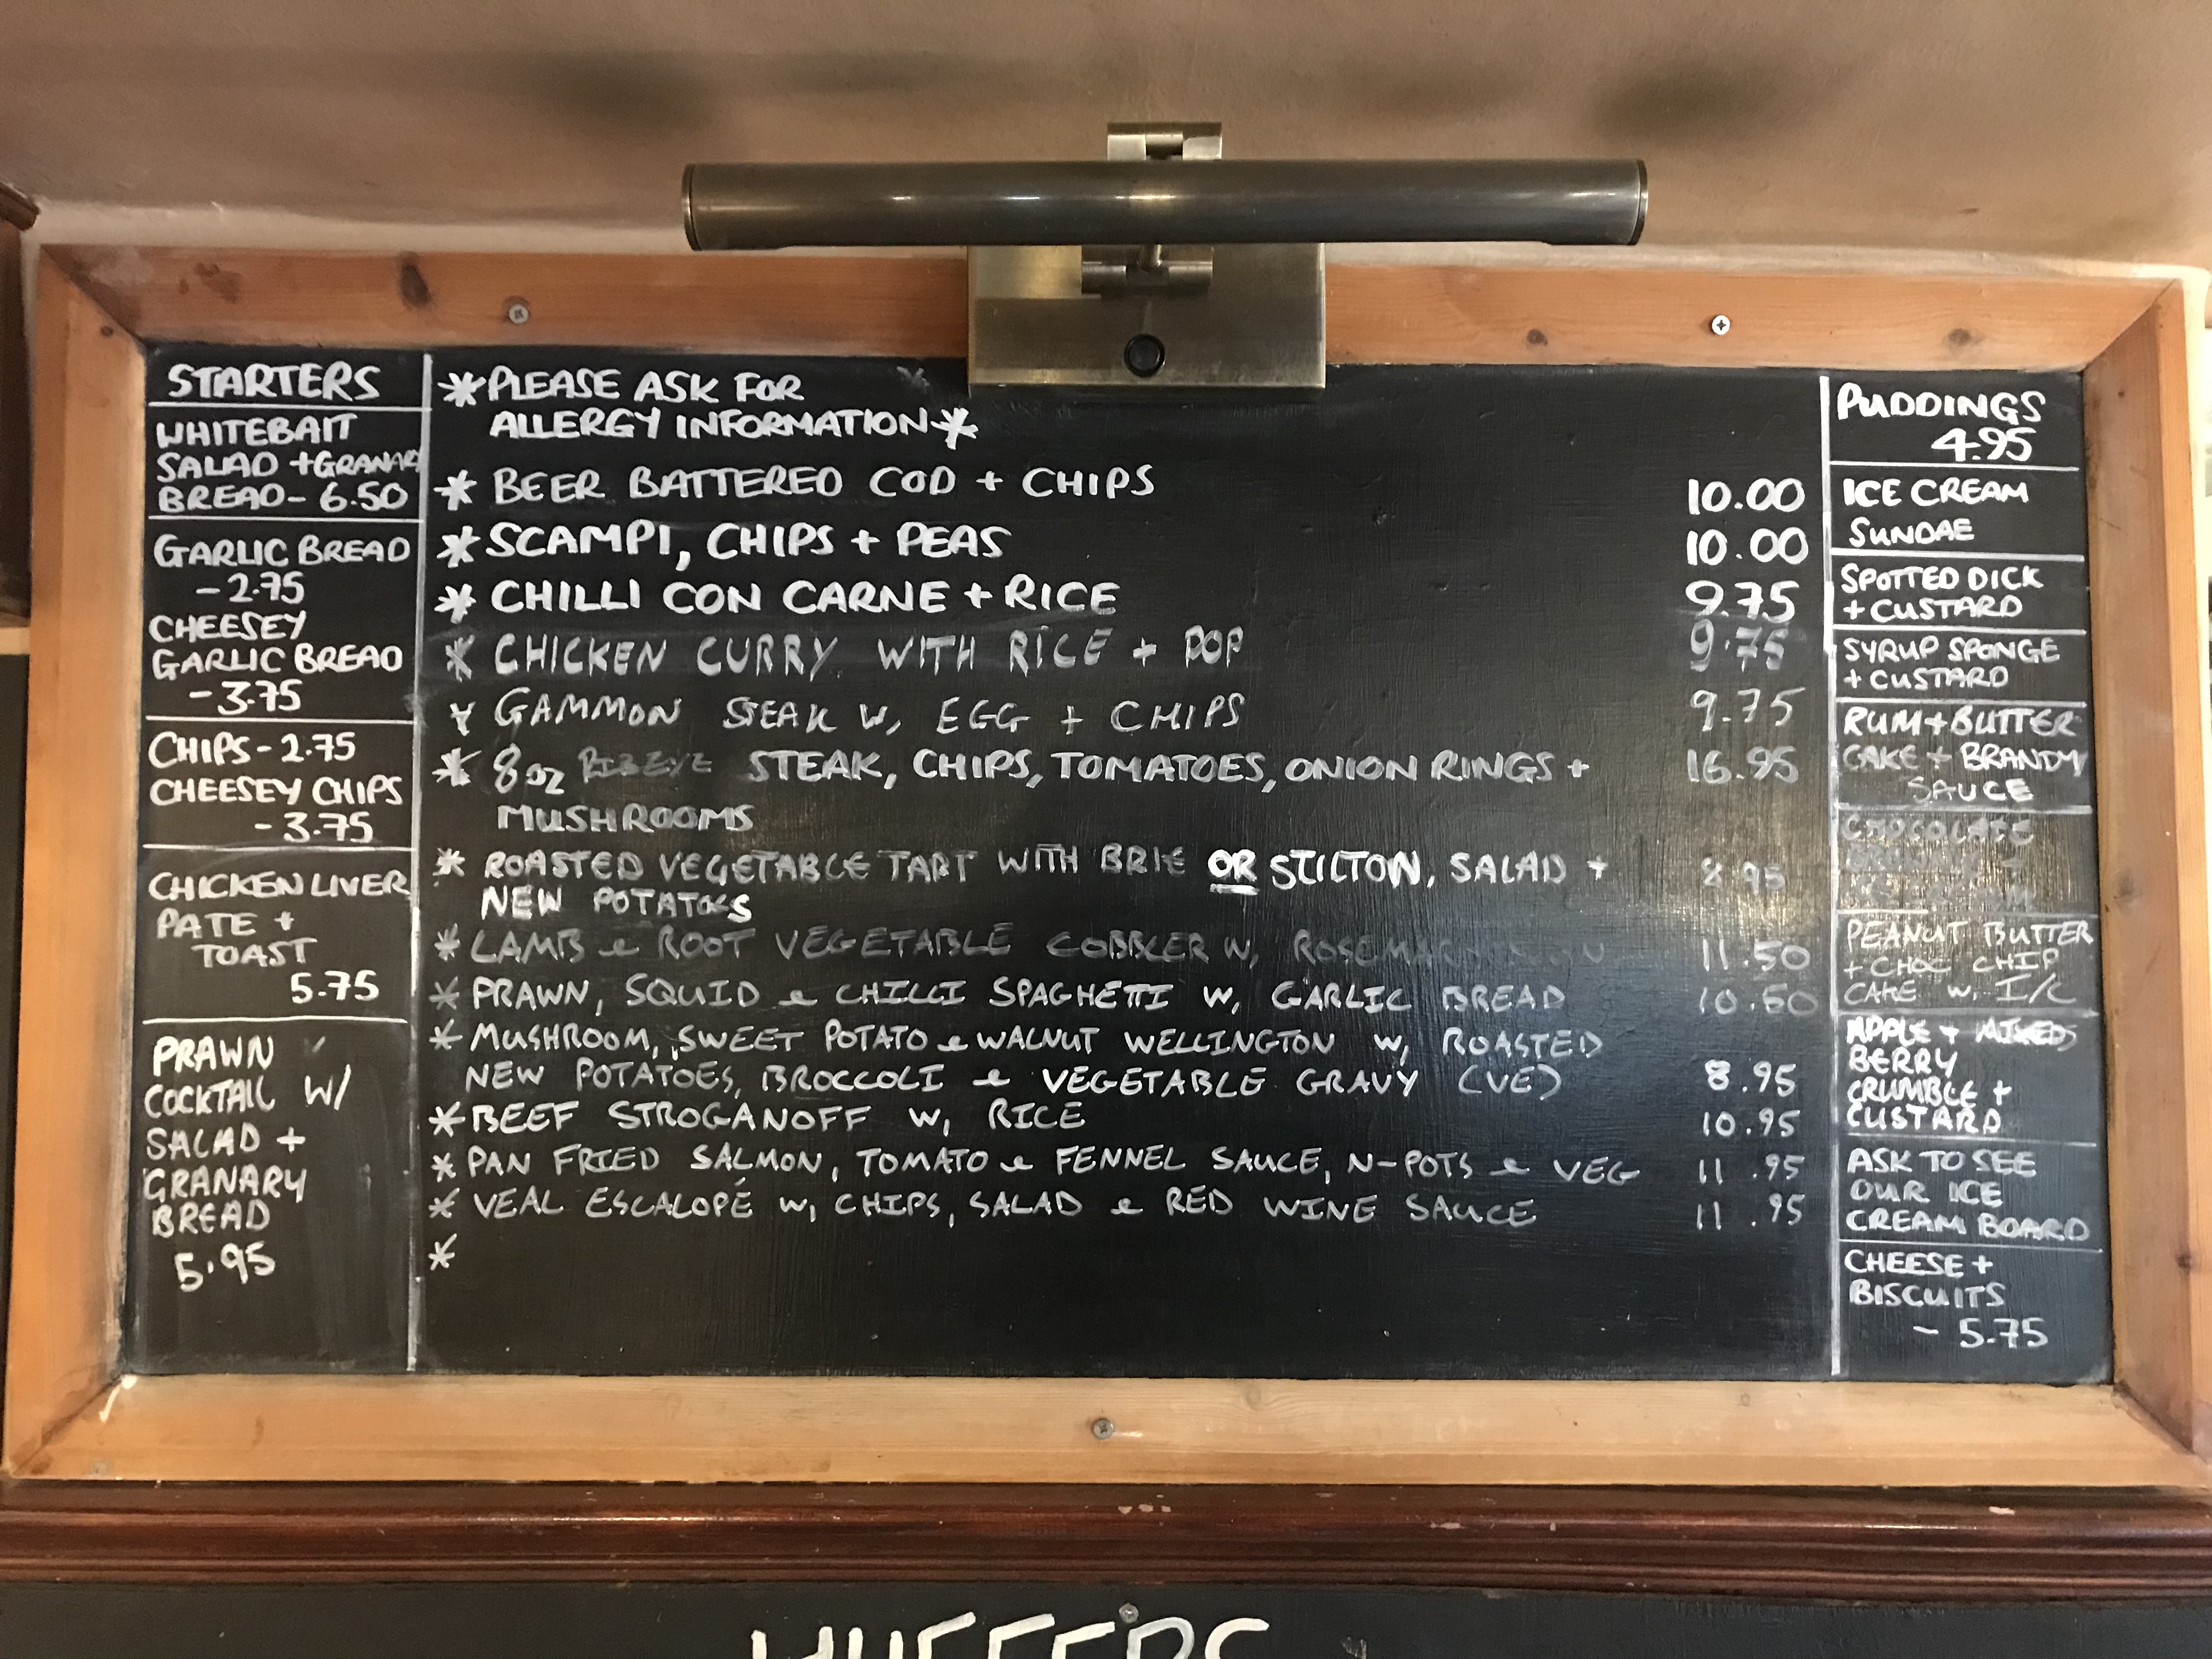 STARTERS
WHITEBAIT
SALAD + GRANARY
BREAD - 6.50
GARLIC BREAD
- 2.75
CHEESEY
GARLIC BREAD
- 3.75
CHIPS - 2.75
CHEESEY CHIPS
- 3.75
CHICKEN LIVER
PATE +
TOAST
5.75
PRAWN
COCKTAIL W/
SALAD +
GRANARY
BREAD
5.95
*PLEASE ASK FOR
ALLERGY INFORMATION*
* BEER BATTERED COD + CHIPS 10.00
* SCAMPI, CHIPS + PEAS 10.00
* CHILLI CON CARNE + RICE 9.75
* CHICKEN CURRY WITH RICE + POP 9.75
* GAMMON STEAK W, EGG + CHIPS 9.75
* 8oz RIBEYE STEAK, CHIPS, TOMATOES, ONION RINGS + 16.95
MUSHROOMS
* ROASTED VEGETABLE TART WITH BRIE OR STILTON, SALAD + 8.95
NEW POTATOES
* LAMB & ROOT VEGETABLE COBBLER W, 11.50
* PRAWN, SQUID & CHILLI SPAGHETTI W, GARLIC BREAD 10.50
* MUSHROOM, SWEET POTATO & WALNUT WELLINGTON W, ROASTED
NEW POTATOES, BROCCOLI & VEGETABLE GRAVY (VE) 8.95
* BEEF STROGANOFF W, RICE 10.95
* PAN FRIED SALMON, TOMATO & FENNEL SAUCE, N-POTS & VEG 11.95
* VEAL ESCALOPÉ W, CHIPS, SALAD & RED WINE SAUCE 11.95
*
PUDDINGS
4.95
ICE CREAM
SUNDAE
SPOTTED DICK
+ CUSTARD
SYRUP SPONGE
+ CUSTARD
RUM + BUTTER
CAKE + BRANDY
SAUCE
CHOCOLATE
PEANUT BUTTER
+ CHOC CHIP
CAKE W, I/C
APPLE + MIXED
BERRY
CRUMBLE +
CUSTARD
ASK TO SEE
OUR ICE
CREAM BOARD
CHEESE +
BISCUITS
- 5.75